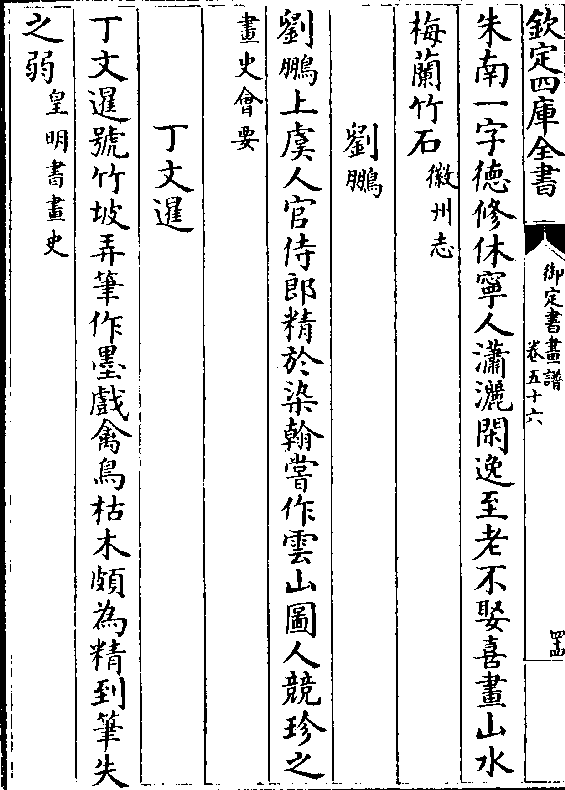 欽定四庫全書
御定書畫譜
卷五十六
朱南一字德修休寧人瀟灑閑逸至老不娶喜畫山水
梅蘭竹石徽州志
劉鵬
劉鵬上虞人官侍郎精於染翰嘗作雲山圖人競珍之
畫史會要
丁文暹
丁文暹號竹坡弄筆作墨戲禽鳥枯木頗為精到筆失
之弱皇明書畫史